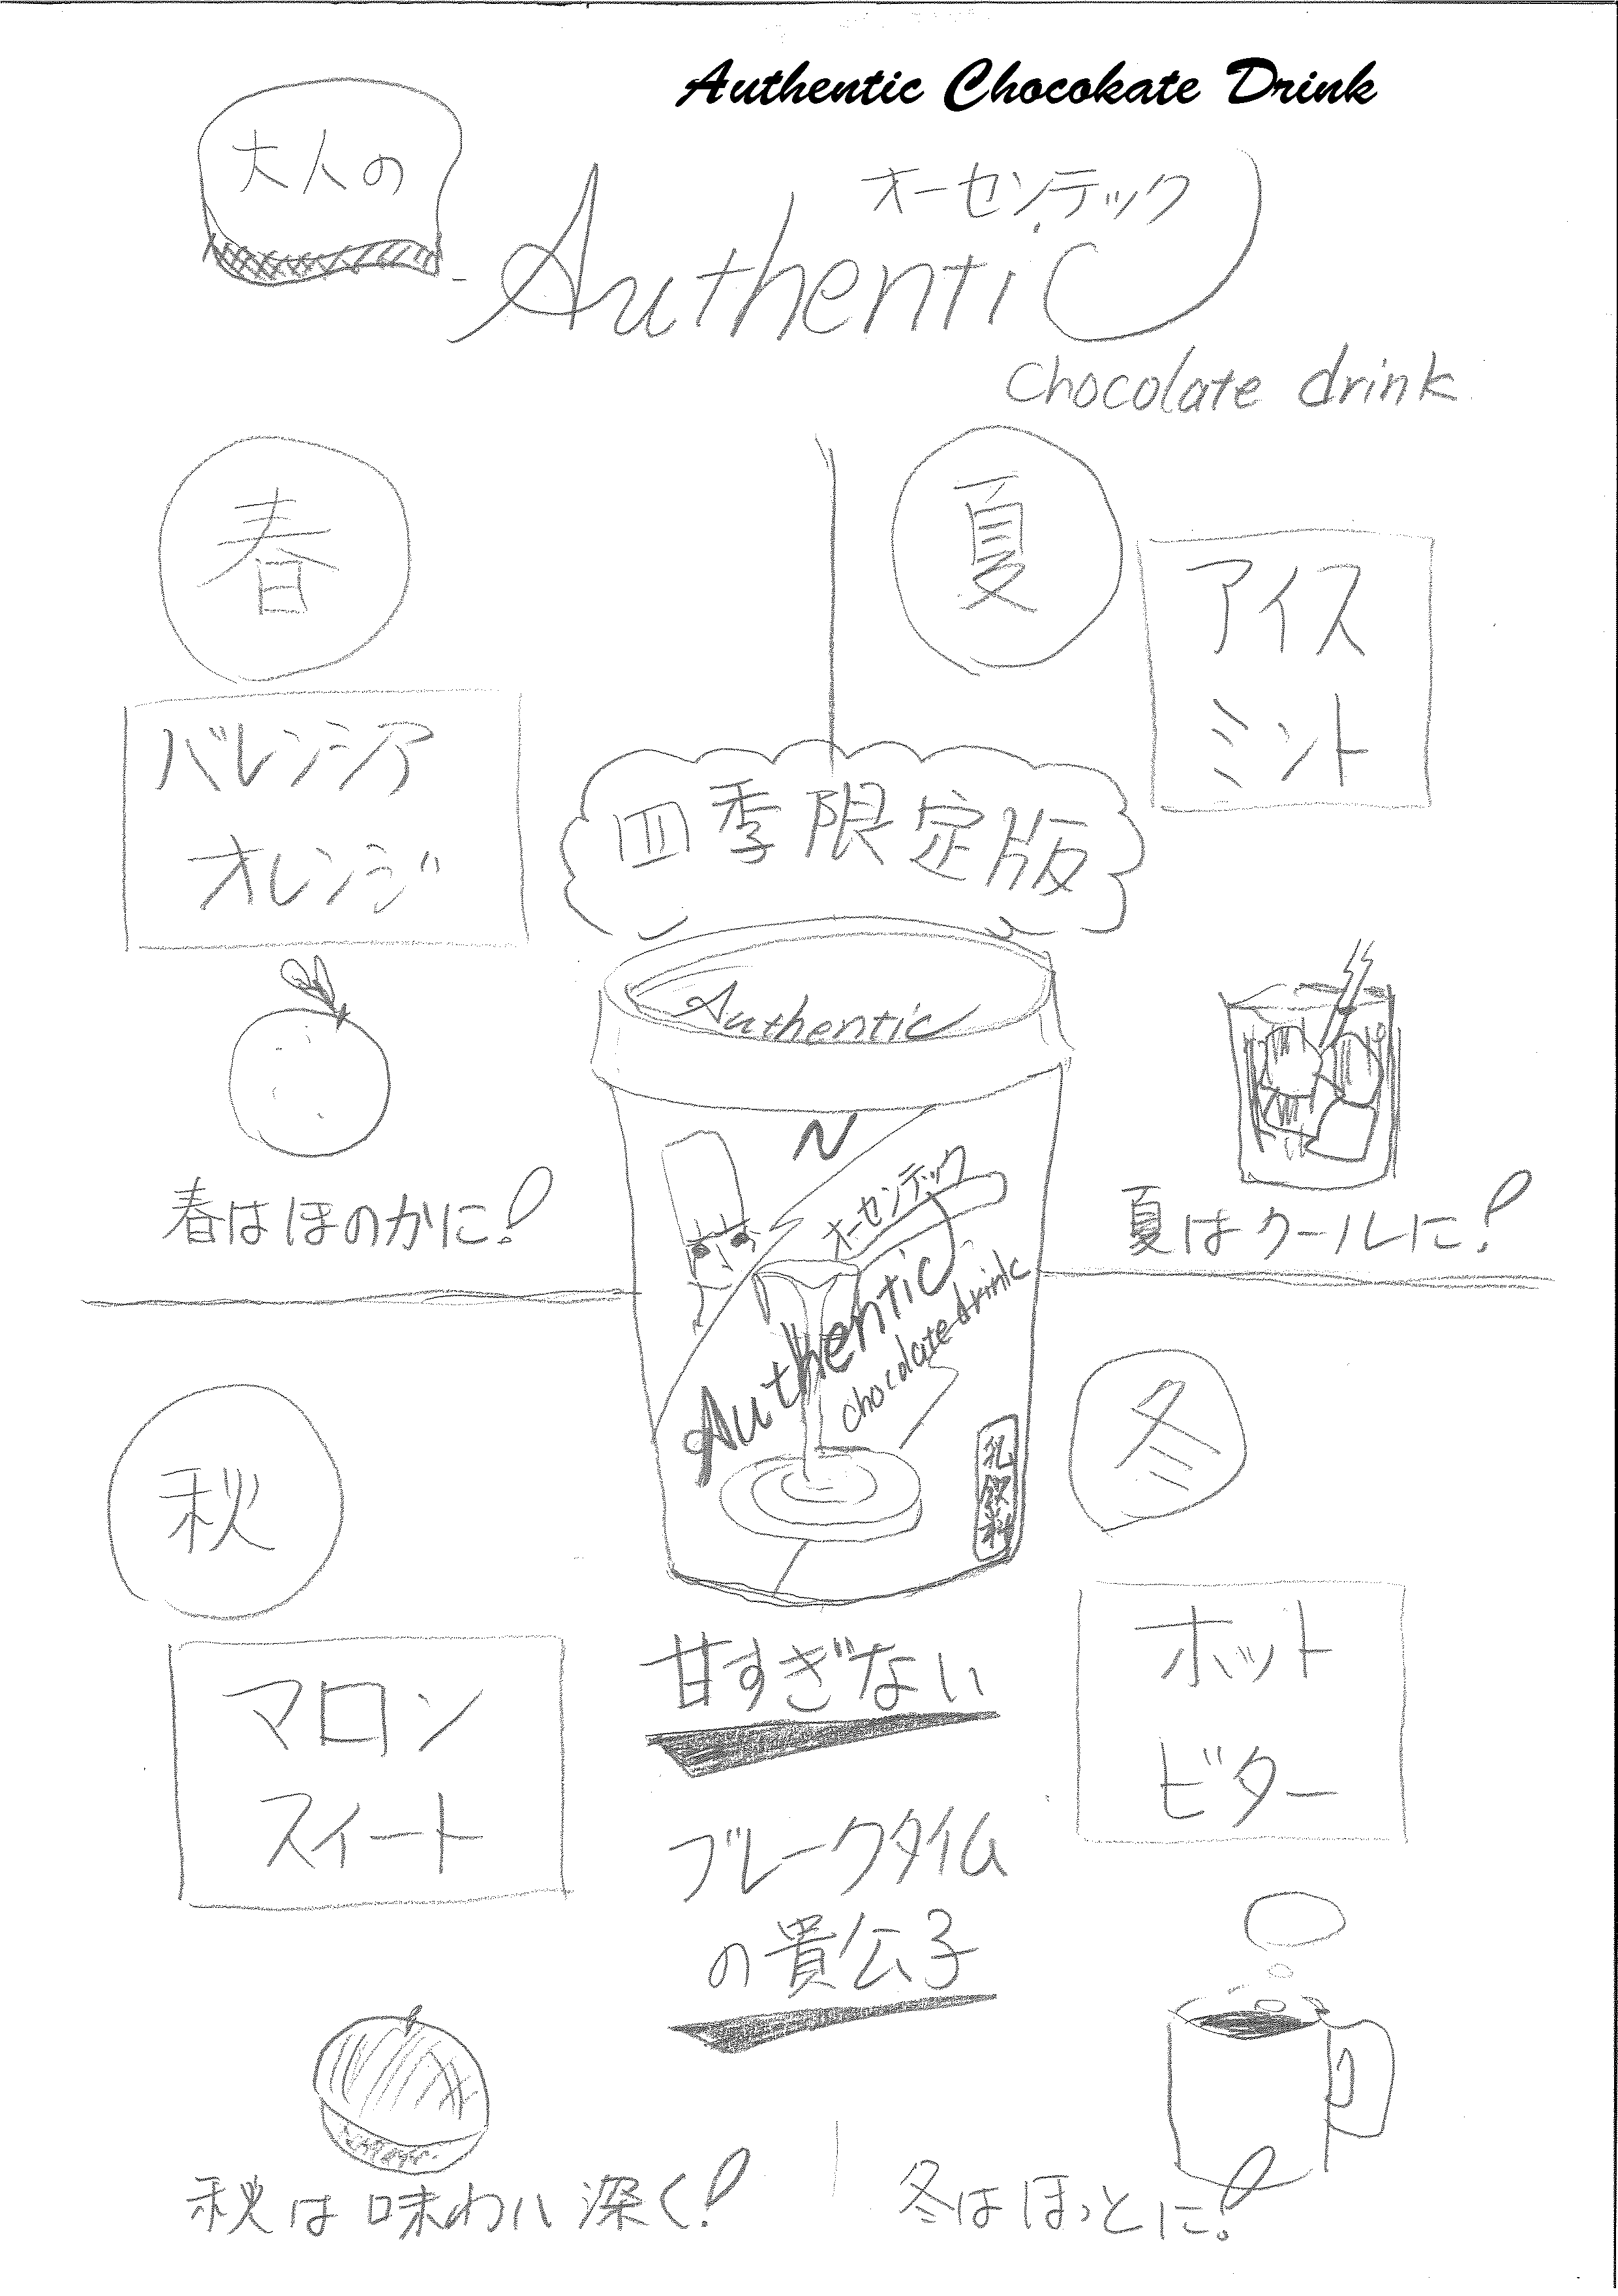 Authentic Chocokate Drink
大人の
オーセンテック
Authentic
chocolate drink
春
夏
アイス
ミント
バレンシア
オレンジ
四季限定版
Authentic
春はほのかに!
夏はクールに!
N
オーセンテック
Authentic
chocolate drink
乳飲料
秋
冬
マロン
スイート
甘すぎない
ホット
ビター
ブレークタイム
の貴公子
秋は味わい深く!
冬はほっとに!